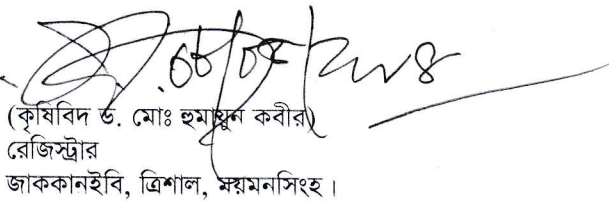 ০৮/০৪/২০২৪
(কৃষিবিদ ড. মোঃ হুমায়ুন কবীর)
রেজিস্ট্রার
জাককানইবি, ত্রিশাল, ময়মনসিংহ।